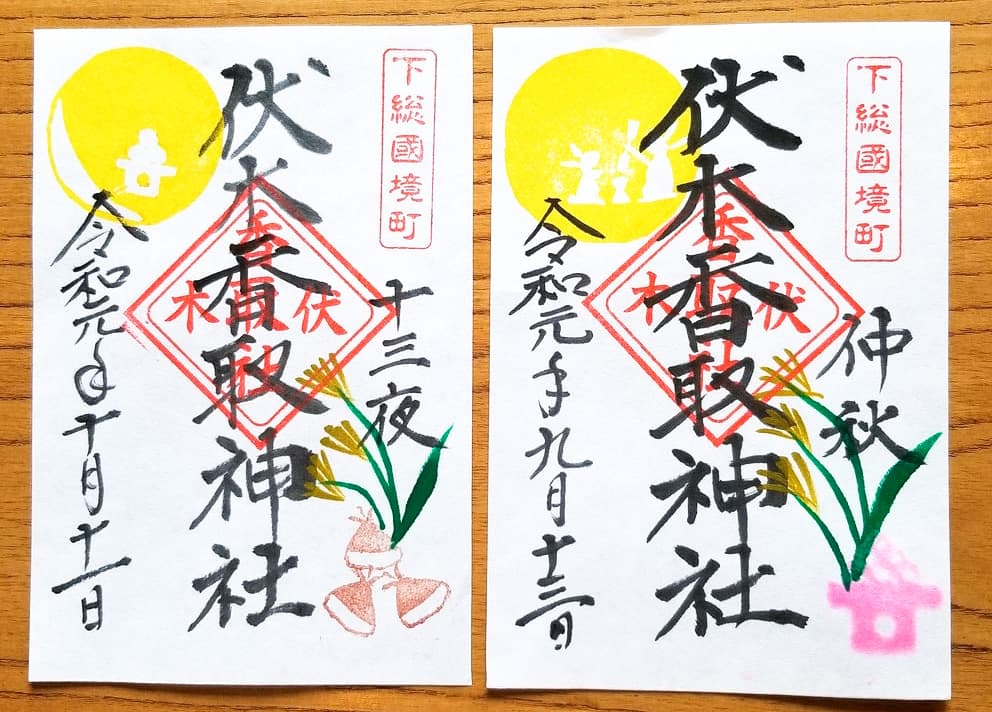 下総國境町
十三夜
伏木香取神社
伏木
令和元年十月十一日
下総國境町
仲秋
伏木香取神社
伏木
令和元年九月十三日